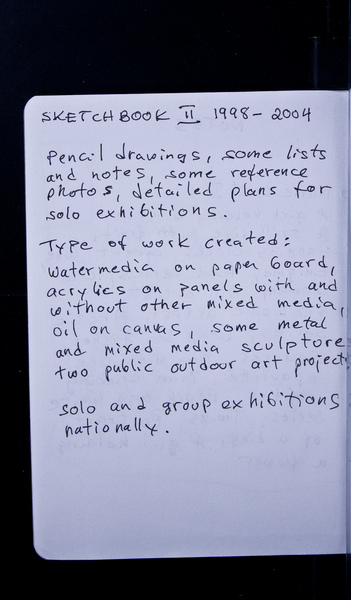 SKETCHBOOK II 1998-2004
Pencil drawings, some lists
and notes, some reference
photos, detailed plans for
solo exhibitions.
Type of work created:
watermedia on paper board,
acrylics on panels with and
without other mixed media,
oil on canvas, some metal
and mixed media sculpture
two public outdoor art projects
solo and group exhibitions
nationally.